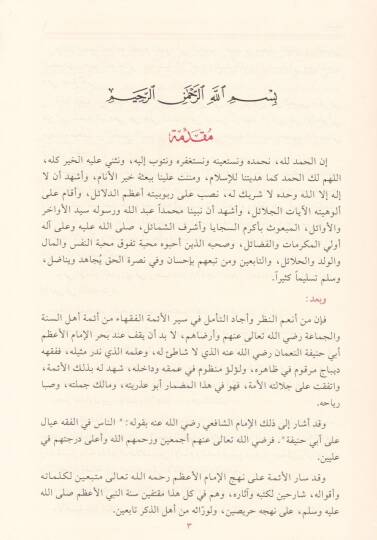 بِسْمِ اللَّهِ الرَّحْمَنِ الرَّحِيمِ
مُقَدِّمَة
إن الحمد لله، نحمده ونستعينه ونستغفره ونتوب إليه، ونثني عليه الخير كله،
اللهم لك الحمد كما هديتنا للإسلام، ومننت علينا ببعثة خير الأنام، وأشهد أن لا
إله إلا الله وحده لا شريك له، نصب على ربوبيته أعظم الدلائل، وأقام على
ألوهيته الآيات الجلائل، وأشهد أن نبينا محمداً عبد الله ورسوله سيد الأواخر
والأوائل، المبعوث بأكرم السجايا وأشرف الشمائل، صلى الله عليه وعلى آله
أولي المكرمات والفضائل، وصحبه الذين أحبوه محبة تفوق محبة النفس والمال
والولد والحلائل، والتابعين ومن تبعهم بإحسان وفي نصرة الحق يُجاهد ويناضل،
وسلم تسليماً كثيراً.
وبعد:
فإن من أنعم النظر وأجاد التأمل في سير الأئمة الفقهاء من أئمة أهل السنة
والجماعة رضي الله تعالى عنهم وأرضاهم، لا بد أن يقف عند بحر الإمام الأعظم
أبي حنيفة النعمان رضي الله عنه الذي لا شاطئ له، وعلمه الذي ندر مثيله، ففقهه
ديباج مرقوم في ظاهره، ولؤلؤ منظوم في عمقه وداخله، شهد له بذلك الأئمة،
واتفقت على جلالته الأمة، فهو في هذا المضمار أبو عذريته، ومالك جملته، وصبا
رياحه.
وقد أشار إلى ذلك الإمام الشافعي رضي الله عنه بقوله: "الناس في الفقه عيال
على أبي حنيفة". فرضي الله تعالى عنهم أجمعين ورحمهم الله وأعلى درجتهم في
عليين.
وقد سار الأئمة على نهج الإمام الأعظم رحمه الله تعالى متبعين لكلماته
وأقواله، شارحين لكتبه وآثاره، وهم في كل هذا مقتفين سنة النبي الأعظم صلى الله
عليه وسلم، على نهجه حريصين، ولورّاثه من أهل الذكر تابعين.
٣